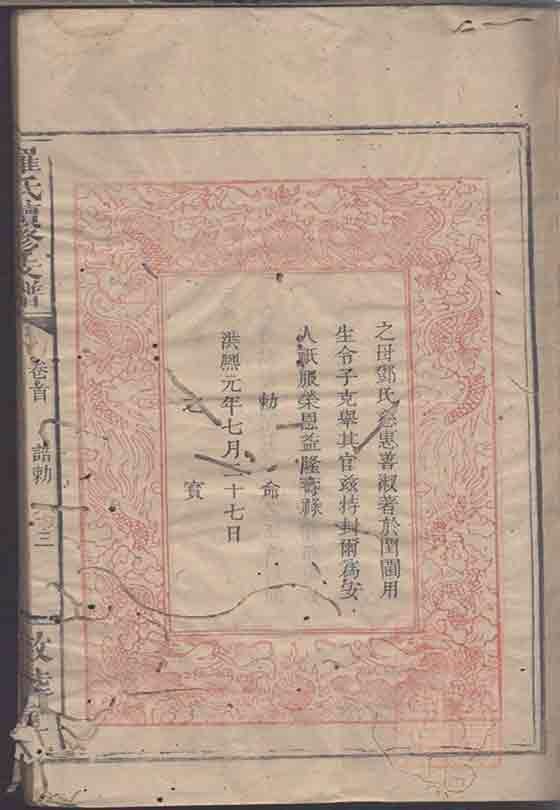 之母鄧氏慈惠善淑著於閨閫用
生令子克舉其官兹特封爾爲安
人祇服榮恩益隆壽祿
勅命
洪熙元年七月二十七日
之寶
羅氏續修支譜
卷首
誥勅
三
敦睦堂